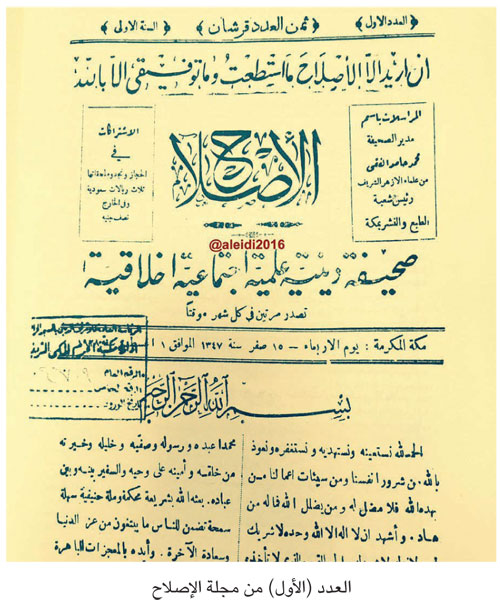 ﴿ العدد الاول ﴾ ﴿ ثمن العدد قرشان ﴾ ﴿ السنة الاولى ﴾
ان اريد الا الأصلاح ما استطعت وما توفيقى الا بالله
المراسلات باسم
مدير الصحيفة
محمد حامد الفقى
من علماء الازهر الشريف
رئيس شعبة
الطبع والنشر بمكة
الأصلاح
الاشتراكات
في
الحجاز ونجد وملحقاتها
ثلاث ريالات سعودية
وفي الخارج
نصف جنيه
@aleidi2016
صحيفة دينية علمية اجتماعية اخلاقية
تصدر مرتين في كل شهر موقتاً
مكة المكرمة : يوم الاربعاء – ١٥ صفر سنة ١٣٤٧ الموافق
بسم الله الرحمن الرحيم
الحمد لله نستعينه ونستهديه ونستغفره ونعوذ
بالله من شرور انفسنا ومن سيئات اعمالنا من
يهده الله فلا مضل له ومن يضلل الله فما له من
هاد . وأشهد ان لا اله الا الله وحده لا شريك
محمداً عبده ورسوله وصفيه وخليله وخيرته
من خلقه وأمينه على وحيه والسفير بينه وبين
عباده. بعثه الله بشريعة محكمة وملة حنيفية سهلة
سمحة تضمن للناس ما يبتغون من عز الدنيا
وسعادة الآخرة . وأيده بالمعجزات الباهرة
العدد (الأول) من مجلة الإصلاح